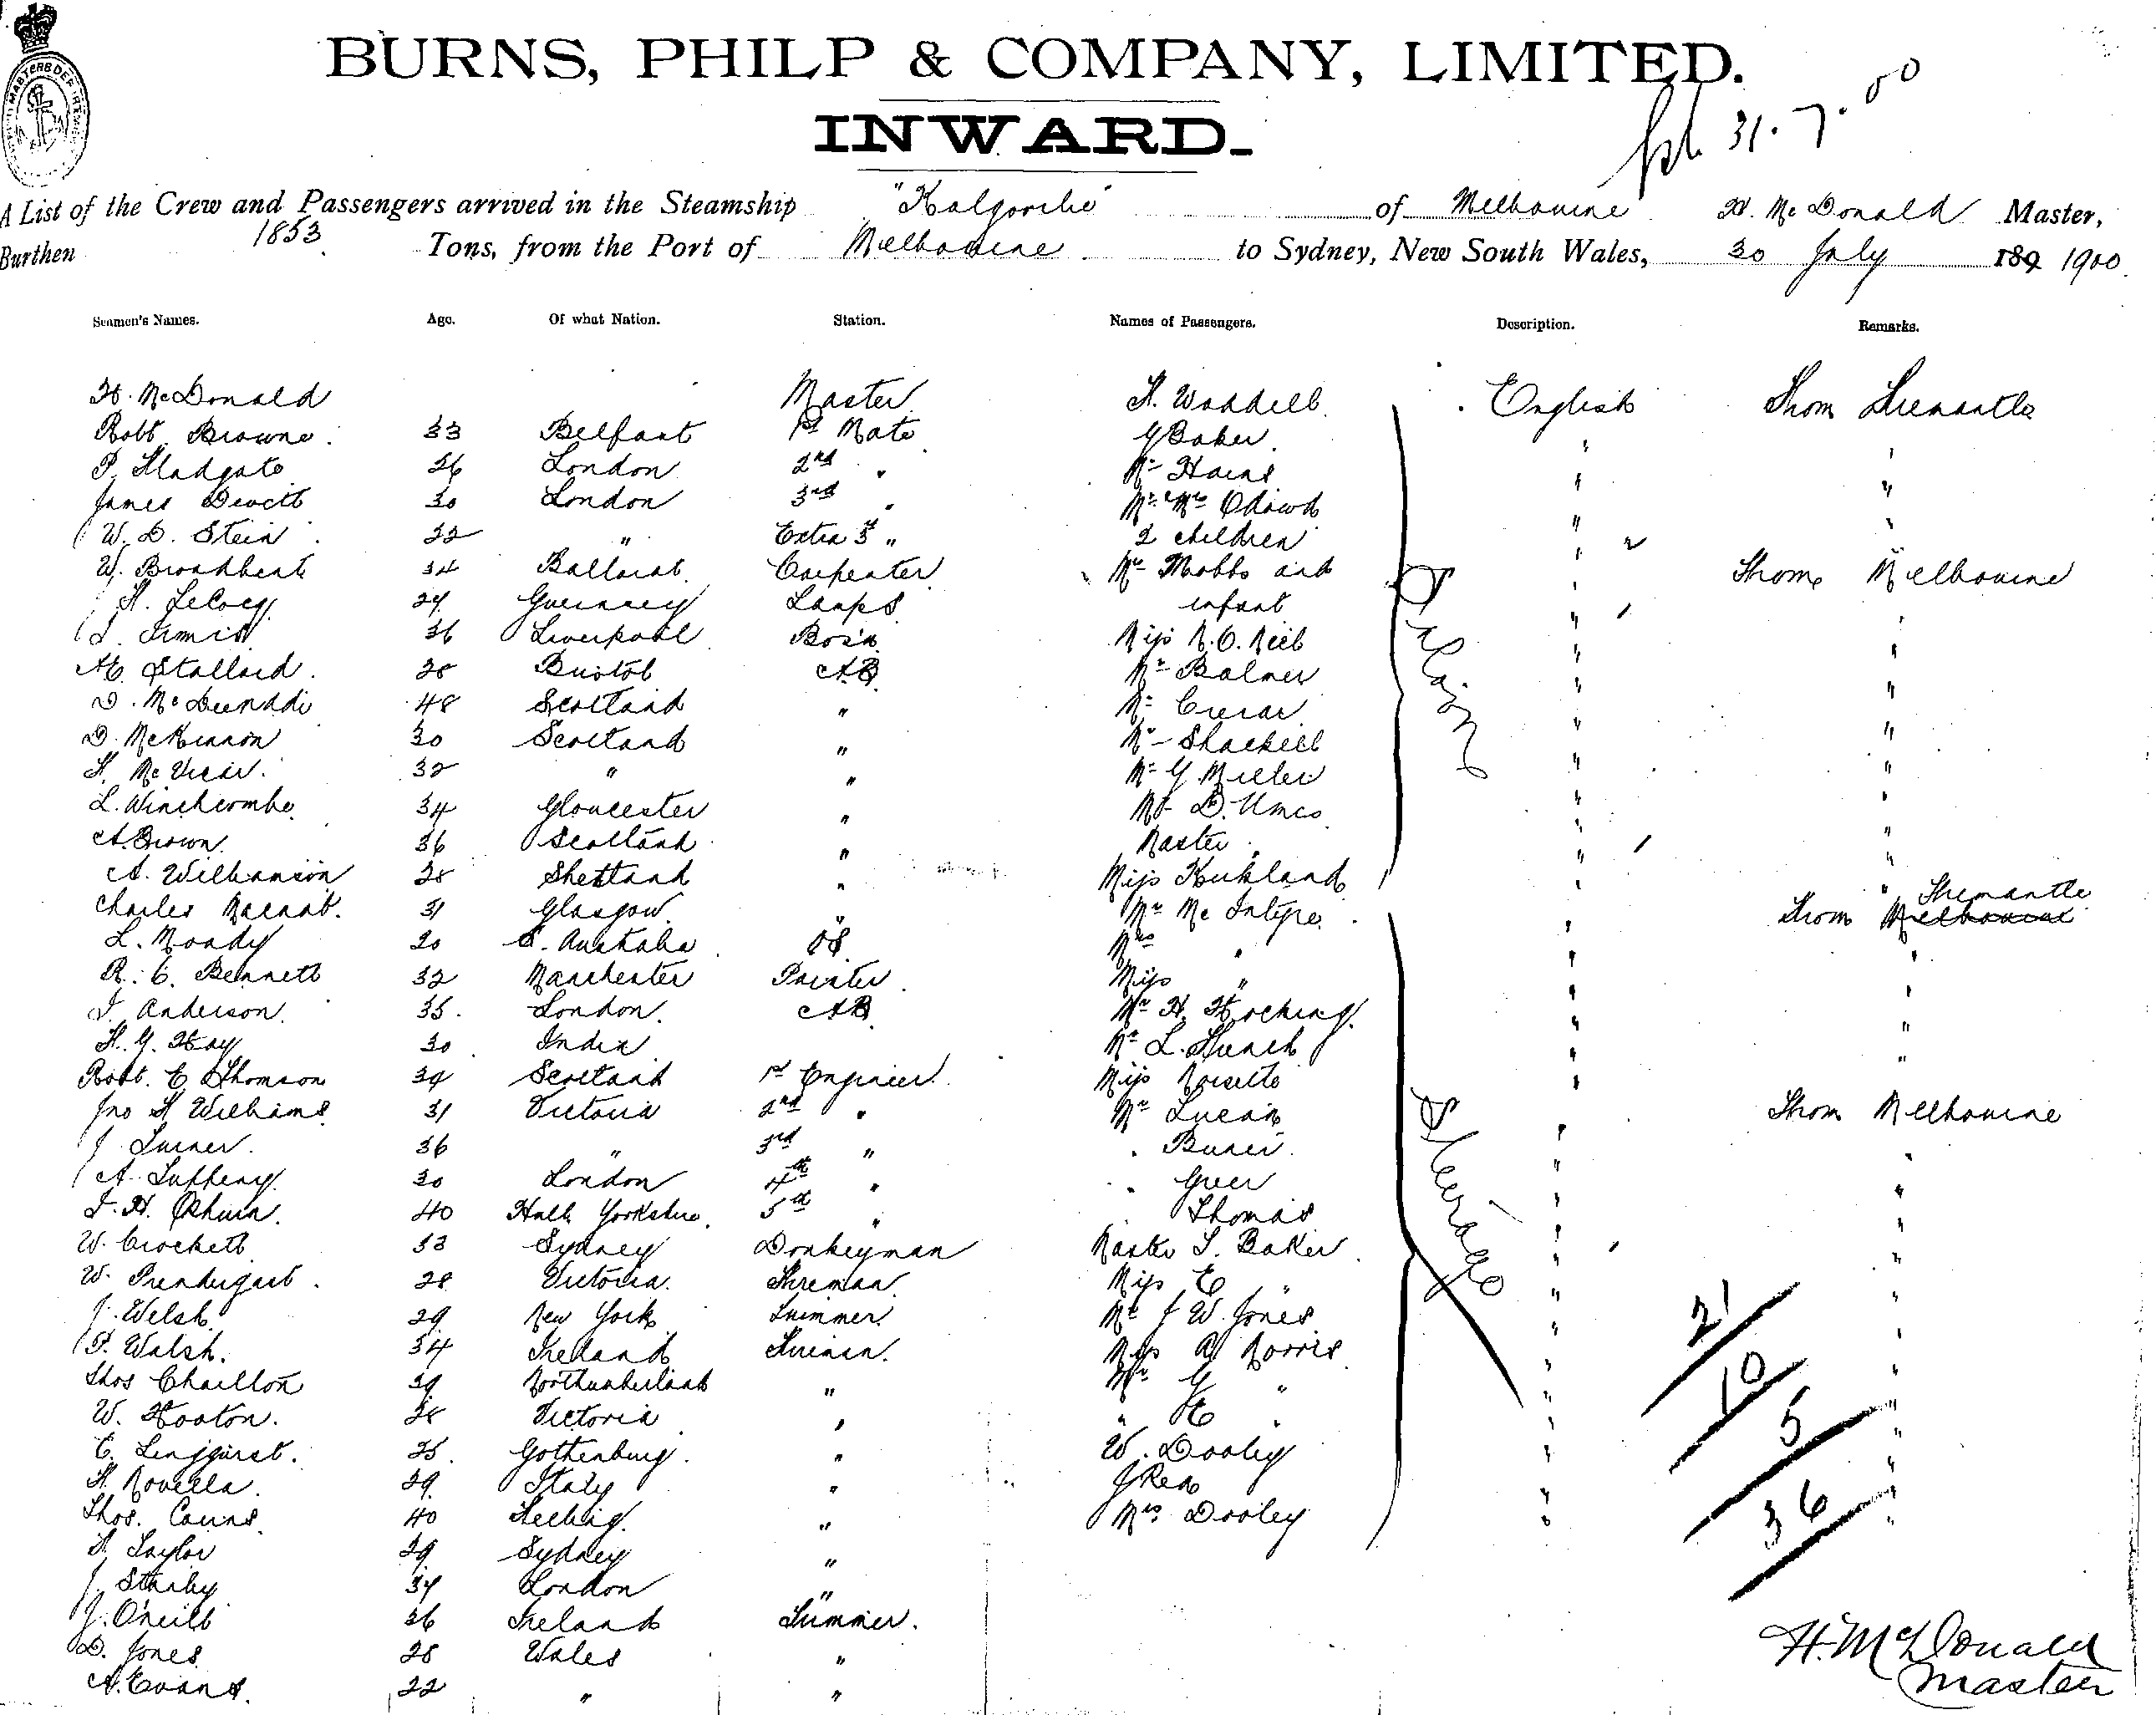 BURNS, PHILP & COMPANY, LIMITED.
INWARD.
31.7.00
A List of the Crew and Passengers arrived in the Steamship "Kalgoorlie" of Melbourne H. McDonald Master,
Burthen 1853 Tons, from the Port of Melbourne to Sydney, New South Wales, 30 July 189 1900.
Seamen's Names. Age. Of what Nation. Station. Names of Passengers. Description. Remarks.
H. McDonald Master H. Waddell English From Fremantle
Robt. Browne 33 Belfast 1st Mate G Baker " "
P. Fladgate 26 London 2nd " Mr Hains " "
James 30 London 3rd " Mr & Mrs Odowd " "
W. D. Stein 22 " Extra 3rd " 2 children "
W. Broadbent 34 Ballarat Carpenter Mrs Mobbs and " From Melbourne
H. LeCocq 29 Guernsey Lamps infant " "
36 Liverpool Bos'n Miss M.O. Neill " "
Stallard 28 Bristol AB Mr Balmer " "
D. Mc 48 Scotland " Mr Crerar " "
D. McKinnon 30 Scotland " Mr Shackell " "
H. McVicar 32 " " Mr G. Miller " "
L. Winchcombe 34 Gloucester " Mr D. " "
A. Brown 36 Scotland " Master " "
A. Williamson 28 Shetland " Miss Kirkland " "
Charles Macnab. 31 Glasgow " Mr McIntyre " From Melbourne Fremantle
L. Moody 20 S. Australia OS Mrs " " "
R. C. Bennett 32 Manchester Painter Miss " " "
J. Anderson 35. London AB Mr H. Hocking " "
H. G. Hay 30 India Mr L. " "
Robt. C Thomson 39 Scotland 1st Engineer Miss "
Jno H Williams 31 Victoria 2nd " Mr Lucan " From Melbourne
J. Turner 36 " 3rd " " "
A. 30 London 4th " " Greer " "
J. H. 40 Hull Yorkshire 5th " Thomas " "
W. Crockett 33 Sydney Donkeyman Master L. Baker " "
W. Prendergast 28 Victoria Fireman Miss E " " "
J. Welsh 29 New York Trimmer Mr J W. Jones " "
P. Walsh. 34 Ireland Fireman. Mrs A Morris " "
Thos Charlton 39 Northumberland " Mr G " " "
W. Hooton. 28 Victoria " " E " " "
C. 25. Gothenburg. " W. Dooley " "
H. Novella. 29 Italy " J Rea " "
Thos. Cairns 40 " Mrs Dooley " "
H. Taylor 29 Sydney "
J. 34 London "
J. O'neill 36 Ireland Trimmer.
D. Jones 28 Wales "
A. Evans. 22 " "
Saloon
Steerage
21
10
5
36
H. McDonald
Master